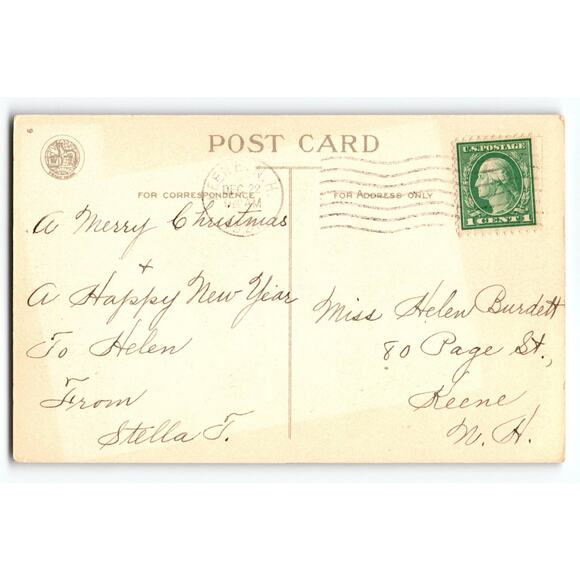 POST CARD
FOR CORRESPONDENCE
FOR ADDRESS ONLY
KEENE, N.H.
DEC 22
M
U.S. POSTAGE
1 CENT 1
A Merry Christmas
+
A Happy New Year
To Helen
From
Stella T.
Miss Helen Burdett
80 Page St.,
Keene
N. H.